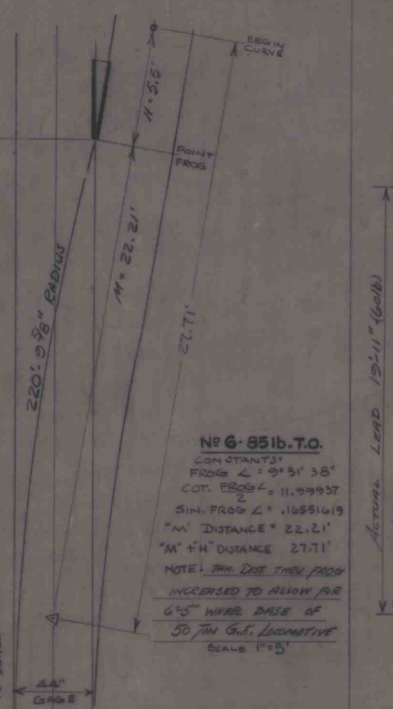 BEGIN
CURVE
H = 5.5'
POINT
FROG
M = 22.21'
220'-9 5/8" RADIUS
27.71'
ACTUAL LEAD 19'-11" (60lb)
Nº 6-85lb.T.O.
CONSTANTS:
FROG ∠ = 9° 31' 38"
COT. FROG∠/2 = 11.99937
SIN. FROG ∠ = .16551619
"M" DISTANCE = 22.21'
"M" + "H" DISTANCE 27.71'
NOTE: TAN. DIST THRU FROG
INCREASED TO ALLOW FOR
6'-5" WHEEL BASE OF
50 TON G.E. LOCOMOTIVE
SCALE 1"=5'
44"
GAGE